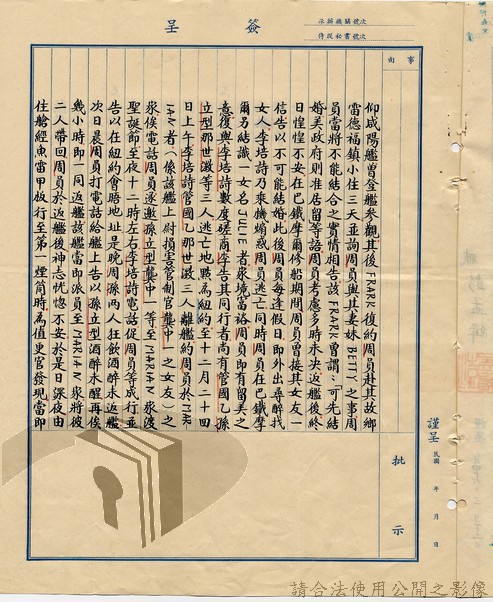 簽呈
承辦機關號次
侍從秘書號次
事由
仰咸陽艦曾登艦參觀其後FRARK復約周員赴其故鄉
雷德福鎮小住三天並詢周員與其妻妹BETTY之事周
員當將不能結合之實情相告該FRARK曾謂:「可先結
婚美政府則准居留等語周員考慮多時未決返艦後終
日惶惶不安在巴鐵摩爾修船期間周員曾接其女友一
信告以不可能結婚此後周員每逢假日即外出尋醉找
女人李培詩乃乘機煽惑周員逃亡同時周員在巴鐵摩
爾另結識一女名JULIE者家境富裕周員即有留美之
意復與李培詩數度磋商李告其同行者尚有管國乙孫
立型那世澂等三人逃亡地點為紐約至十二月二十四
日上午李培詩管國乙那世澂三人離艦約周員於MAR
IAN者(係該艦上尉損害管制官龔中一之女友)之
家俟電話周員遂邀孫立型龔中一等至MARIAN家渡
聖誕節至夜十二時左右李培詩電話促周員等成行並
告以在紐約會晤地址是晚周孫兩人狂飲酒醉未返艦
次日晨周員打電話給艦上告以孫立型酒醉未醒再俟
幾小時即一同返艦該艦當即派員至MARIAN家將彼
二人帶回周員於返艦後神志恍惚不安於是日深夜由
住艙經魚雷甲板行至第一煙筒時為值更官發現當即
謹呈
民國 年 月 日
批示
請合法使用公開之影像